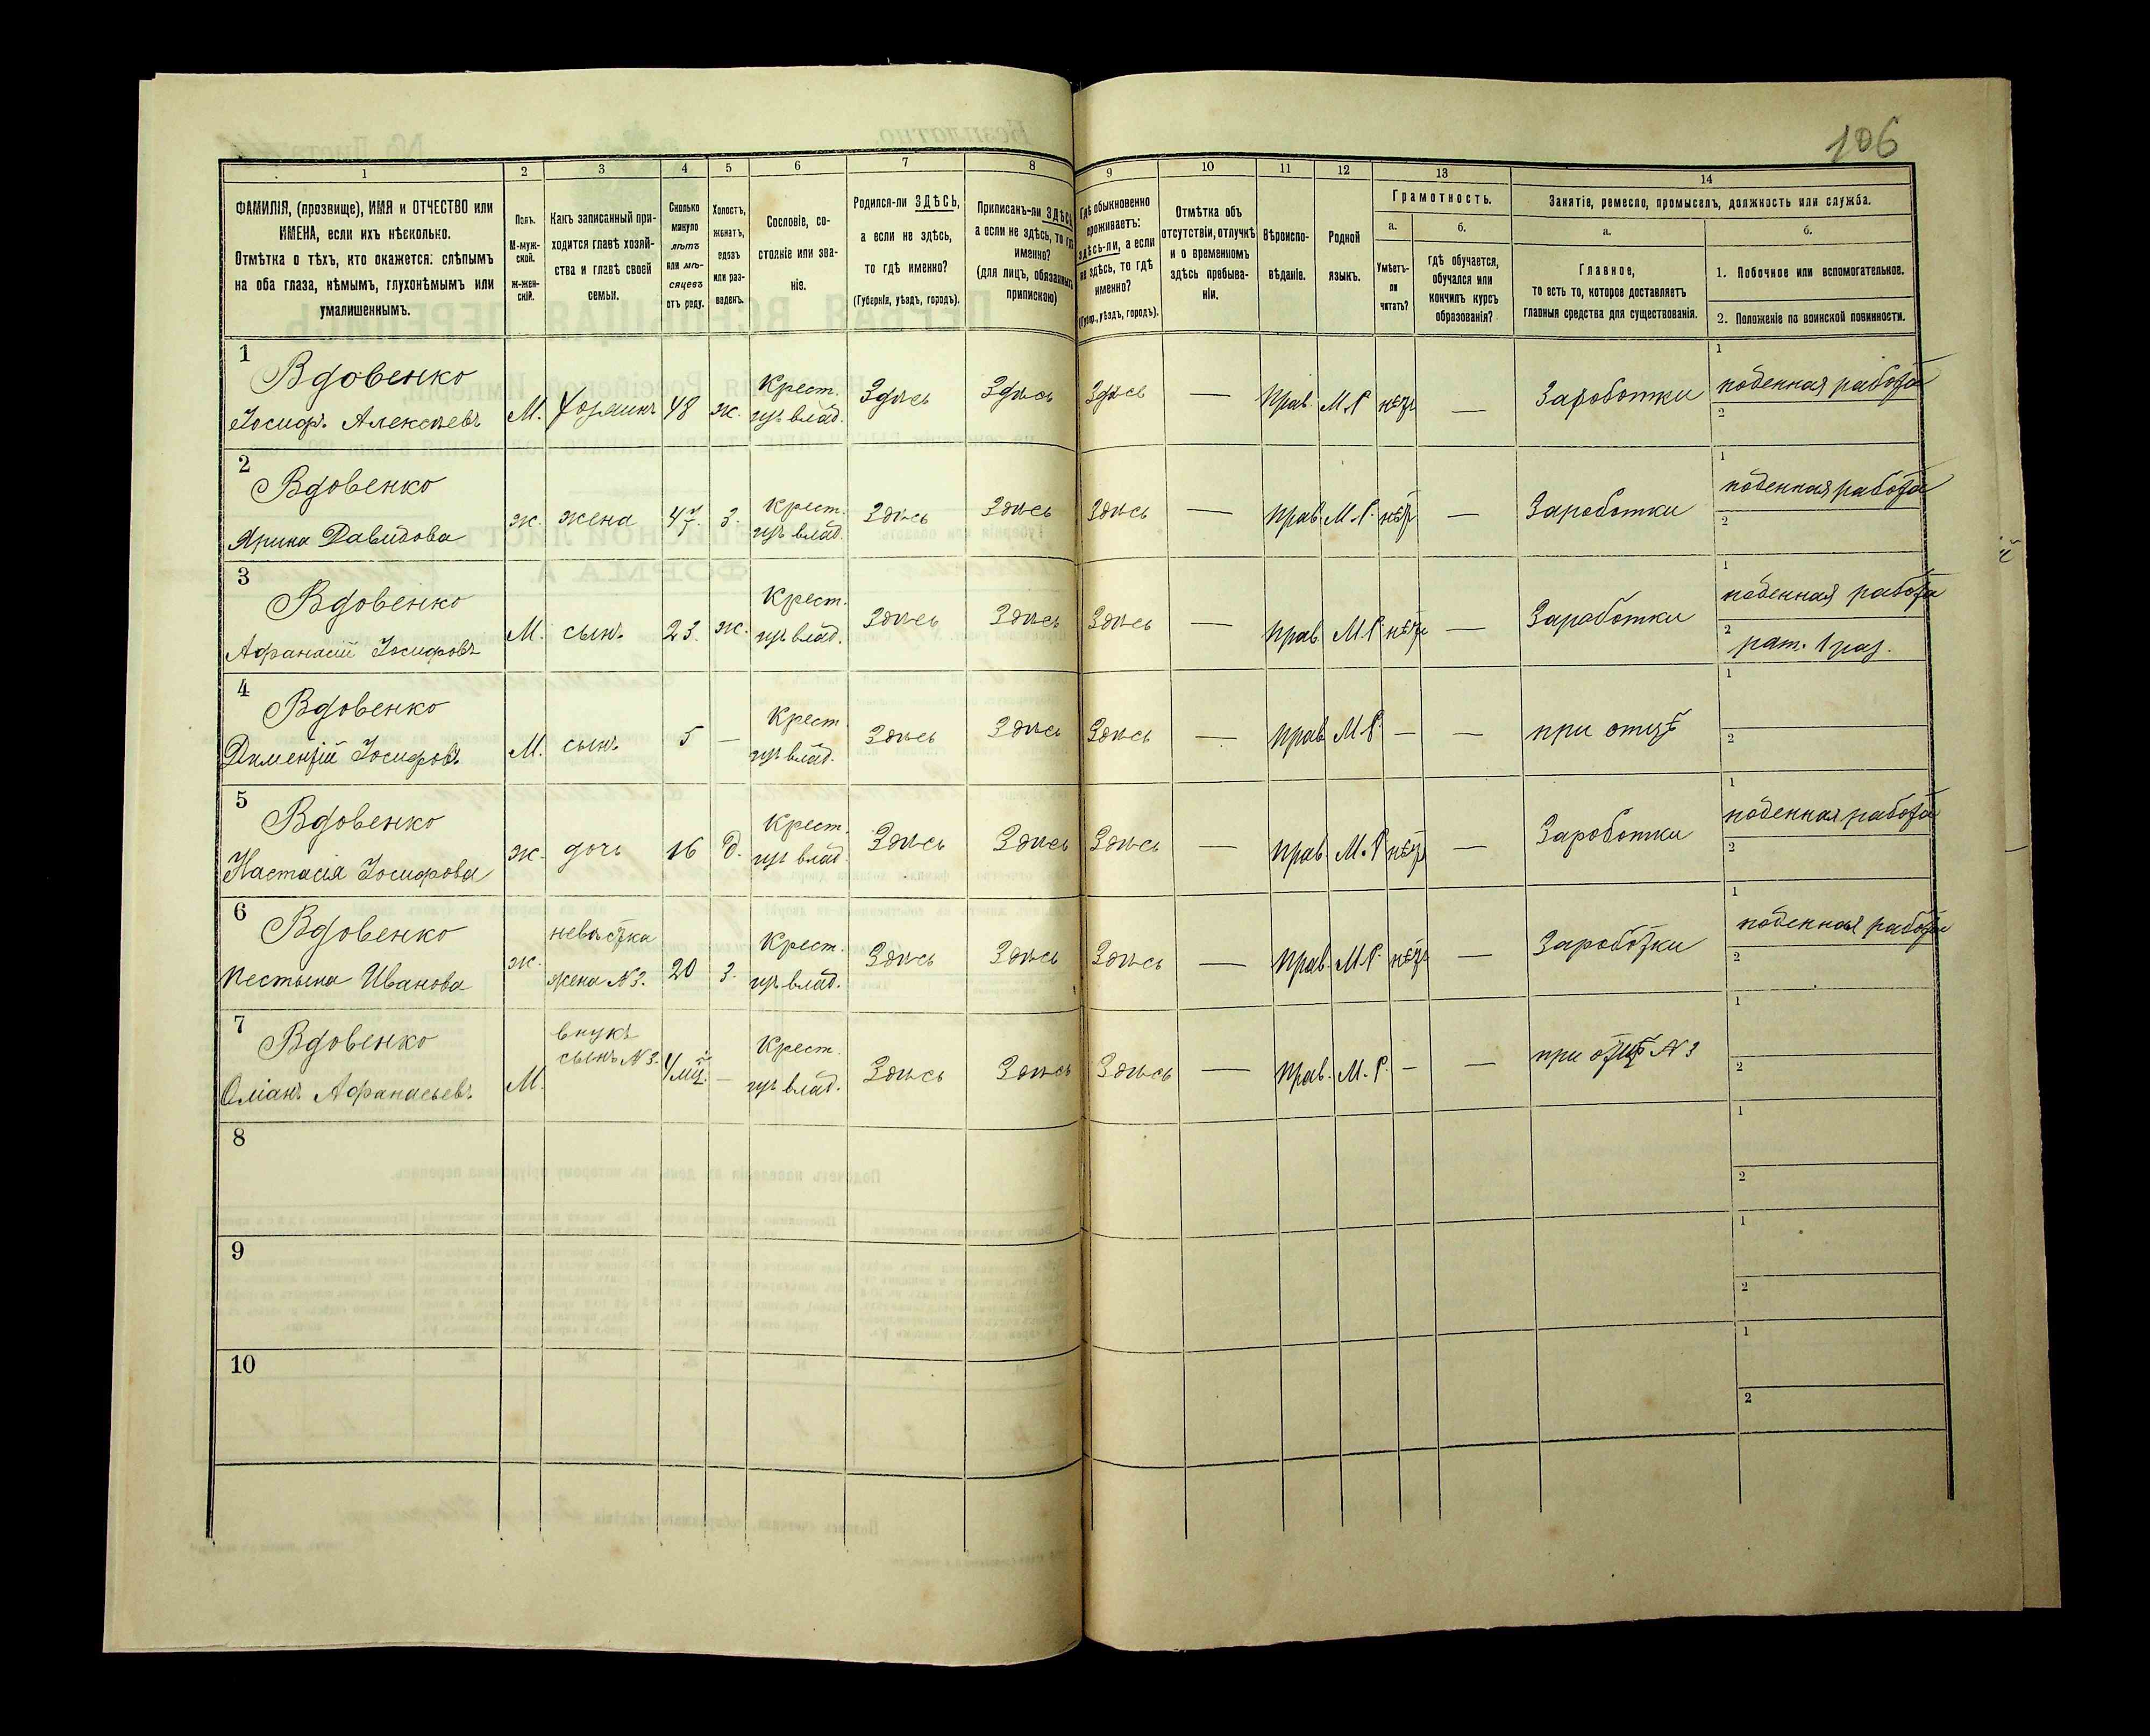 106
1
2
3
4
5
6
7
8
9
10
11
12
13
14
ФАМИЛІЯ, (прозвище), ИМЯ и ОТЧЕСТВО или
ИМЕНА, если ихъ нѣсколько.
Отмѣтка о тѣхъ, кто окажется: слѣпымъ
на оба глаза, нѣмымъ, глухонѣмымъ или
умалишеннымъ.
Полъ.
М-муж-
ской.
ж-жен-
скій.
Какъ записанный при-
ходится главѣ хозяй-
ства и главѣ своей
семьи.
Сколько
минуло
лѣтъ
или мѣ-
сяцевъ
отъ роду.
Холостъ,
женатъ,
вдовъ
или раз-
веденъ.
Сословіе, со-
стояніе или зва-
ніе.
Родился-ли ЗДѢСЬ,
а если не здѣсь,
то гдѣ именно?
(Губернія, уѣздъ, городъ).
Приписанъ-ли ЗДѢСЬ,
а если не здѣсь, то гдѣ
именно?
(для лицъ, обязанныхъ
припискою)
Гдѣ обыкновенно
проживаетъ:
здѣсь-ли, а если
не здѣсь, то гдѣ
именно?
(Губер., уѣздъ, городъ).
Отмѣтка объ
отсутствіи, отлучкѣ
и о временномъ
здѣсь пребыва-
ніи.
Вѣроиспо-
вѣданіе.
Родной
языкъ.
Грамотность.
а.
Умѣетъ-
ли
читать?
б.
гдѣ обучается,
обучался или
кончилъ курсъ
образованія?
Занятіе, ремесло, промыселъ, должность или служба.
а.
Главное,
то есть то, которое доставляетъ
главныя средства для существованія.
б.
1. Побочное или вспомогательное.
2. Положеніе по воинской повинности.
1
Вдовенко
Іосиф. Алексѣевъ
М.
хозяинъ
48
ж.
Крест.
изъ влад.
Здѣсь
Здѣсь
Здѣсь
—
Прав.
М.Р.
нѣтъ
—
Заработки
1
поденная работа
2
2
Вдовенко
Ярина Давидова
ж.
жена
47.
З.
Крест.
изъ влад.
Здѣсь
Здѣсь
Здѣсь
—
прав.
М.Р.
нѣт
—
Заработки
1
поденная работа
2
3
Вдовенко
Афанасій Іосифовъ
М.
сынъ
23.
ж.
Крест.
изъ влад.
Здѣсь
Здѣсь
Здѣсь
—
прав
М.Р.
нѣтъ
—
Заработки
1
поденная работа
2
рат. 1 раз.
4
Вдовенко
Дементій Іосифовъ
М.
сынъ
5
—
Крест.
изъ влад.
Здѣсь
Здѣсь
Здѣсь
—
прав
М.Р.
—
—
при отцѣ
1
2
5
Вдовенко
Настасія Іосифова
ж.
дочь
16
д.
Крест.
изъ влад.
Здѣсь
Здѣсь
Здѣсь
—
прав.
М.Р.
нѣтъ
—
Заработки
1
поденная работа
2
6
Вдовенко
Пестына Иванова
ж.
невѣстка
жена №3.
20
З.
Крест.
изъ влад.
Здѣсь
Здѣсь
Здѣсь
—
прав.
М.Р.
нѣтъ
—
Заработки
1
поденная работа
2
7
Вдовенко
Оліанъ Афанасьевъ
М.
внукъ
сынъ №3.
—
Крест.
изъ влад.
Здѣсь
Здѣсь
Здѣсь
—
прав.
М.Р.
—
—
при отцѣ №3
1
2
8
1
2
9
1
2
10
1
2